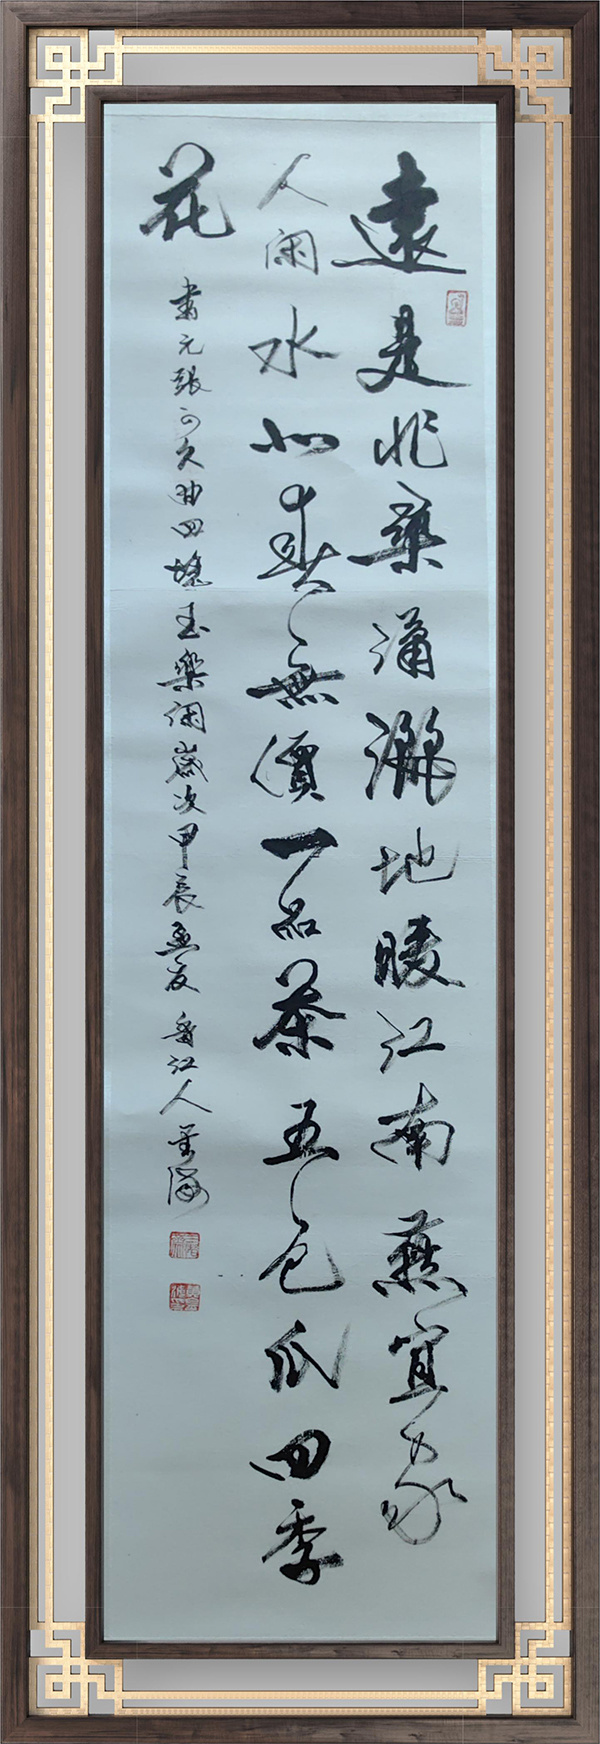 遠是非尋瀟灑地暖江南燕宜家
人閑水北春無價一品茶五色瓜四季
花
書元張可久曲四塊玉樂閑歲次甲辰孟夏 香江人